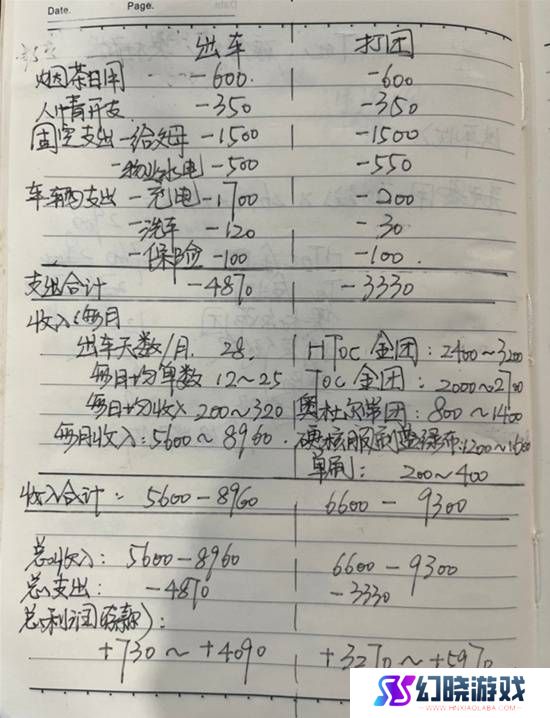 Date. Page. Date.
出车 打团
烟茶日用 -600. -600
人情开支 -350 -350
固定支出-给父母 -1500 -1500
-物业水电 -500 -550
车辆支出-充电 -1700 -200
-洗车 -120 -30
-保险 -100 -100.
支出合计 -4870 -3330
收入(每月
出车天数/月. 28. HToc 金团: 2400~3200
每日均单数 12~25 Toc 金团: 2000~2700
每日均收入 200~320 奥杜尔单团: 800~1400
每月收入: 5600~8960. 硬核服刷蓝绿布: 1200~1600
单刷: 200~400
收入合计: 5600-8960 6600-9300
总收入: 5600-8960 6600-9300
总支出: -4870 -3330
总利润(存款):
+730~+4090 +3270~+5970
幻晓游戏
WWW.HNXIAOLABA.COM